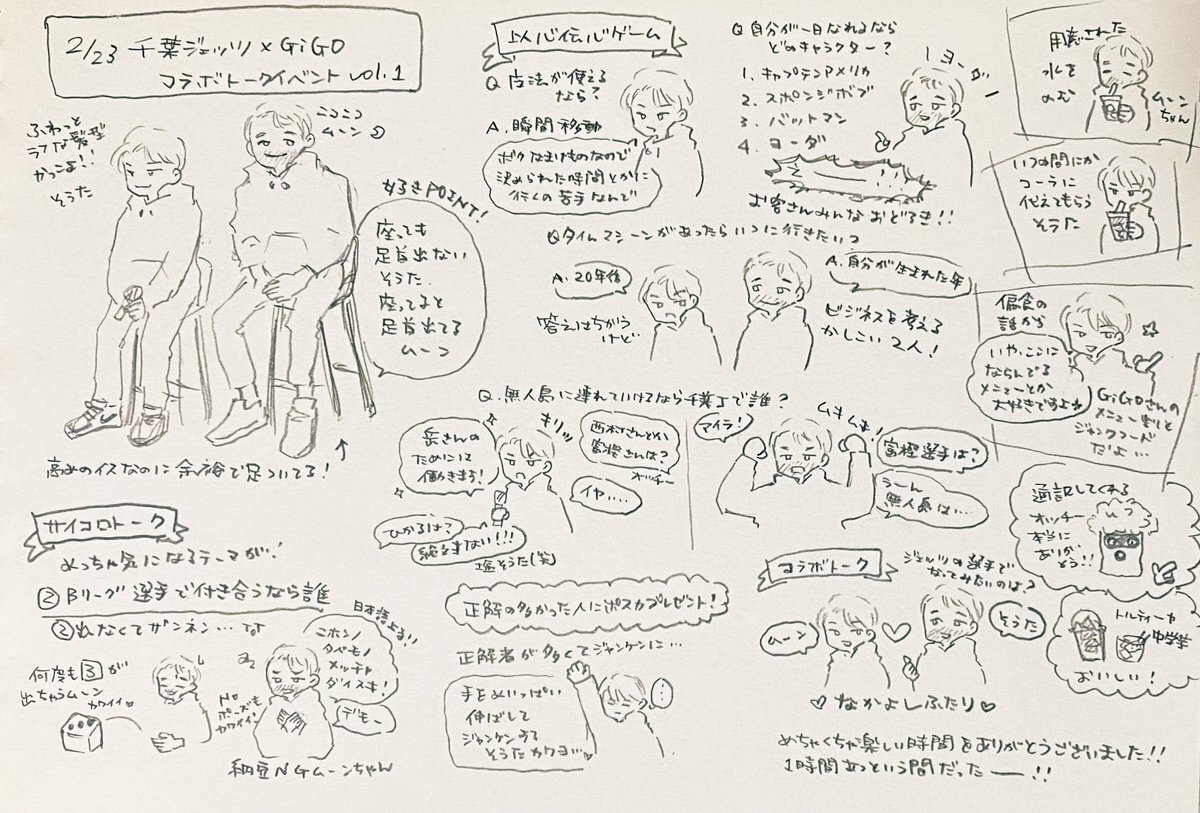 2/23 千葉ジェッツ×GiGO
コラボトークイベント vol.1
ふわっと
ラフな髪型
かっこよ!!
そうた
ニコニコ
ムーン
好きPOINT!
座っても
足首出ない
そうた
座ってると
足首出てる
ムーン
高めのイスなのに余裕で足ついてる!
サイコロトーク
めっちゃ気になるテーマが!
②Bリーグ選手で付き合うなら誰
②出なくてザンネン…な
何度も3が
出ちゃうムーン
カワイイ
日本語よき!!
ニホンノ
タベモノ
メッチャ
ダイスキ!
デモー
NO
ポーズも
カワイイ
納豆NGムーンちゃん
以心伝心ゲーム
Q 魔法が使える
なら?
A. 瞬間移動
ボクなまけものなので
決められた時間とかに
行くの苦手なんで
Q 自分が一日なれるなら
どのキャラクター?
1. キャプテンアメリカ
2. スポンジボブ
3. バットマン
4. ヨーダ
ヨーダ
お客さんみんなおどろき!!
Qタイムマシーンがあったらいつに行きたい?
A. 20年後
答えはちがう
けど
A. 自分が生まれた年
ビジネスを考える
かしこい2人!
Q. 無人島に連れていけるなら千葉Jで誰?
岳さんの
ためには
働きます!
キリッ
西村さんとか
富樫さんは?
オッチー
イヤ…
ひかるは?
絶対ない!!!
塩そうた(笑)
マイラ!
ムキムキ!
富樫選手は?
うーん
無人島は…
正解の多かった人にポスカプレゼント!
正解者が多くてジャンケンに…
手をめいっぱい
伸ばして
ジャンケンする
そうたカワヨ…
コラボトーク
ジェッツの選手で
なってみたいのは?
ムーン
そうた
♡なかよしふたり♡
めちゃくちゃ楽しい時間をありがとうございました!!
1時間あっという間だったー!!
用意された
水を
のむ
ムーン
ちゃん
いつの間にか
コーラに
代えてもらう
そうた
偏食の
話から
いや、ここに
ならんでる
メニューとか
大好きですよね
GiGOさんの
メニュー割と
ジャンクフード
だよ…
通訳してくれる
オッチー
本当に
ありが
とう!!
トルティーヤ
おいしい!